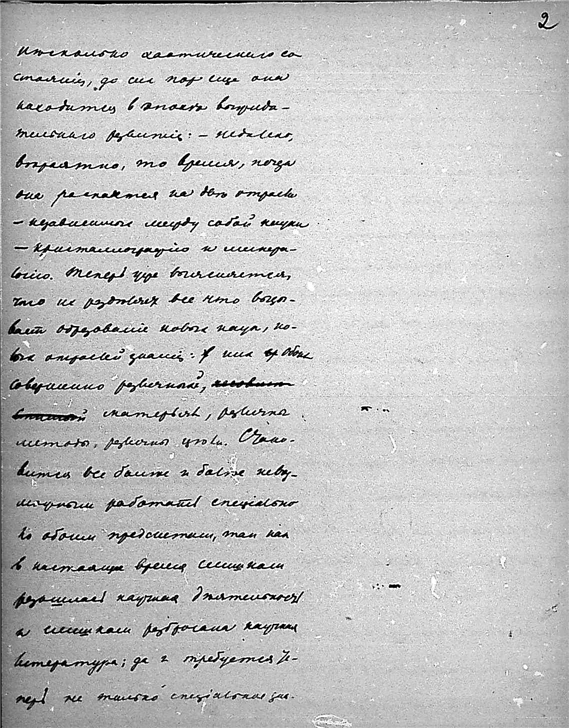 2
нѣсколько хаотическаго со
стоянія, до сих пор еще она
находится в эпоха
тельнаго развитія: – недалеко,
вѣроятно, то время, когда
она распадется на двѣ отрасли
– независимыя между собой науки
– кристаллографію и минера-
логію. Теперь уже выясняется,
что их раздѣляет все что вызы-
вает образованіе новых наук, но-
вых отраслей знанія: у них
совершенно различный,
матерьял, различны
методы, различны цѣли. Стано-
вится все болѣе и болѣе невоз-
можным работать спеціально
по обоим предметам, так как
в настоящее время слишком
разошлась научная дѣятельность
и слишком разбросана научная
литература; да и требуется те-
перь не только спеціальное зна-